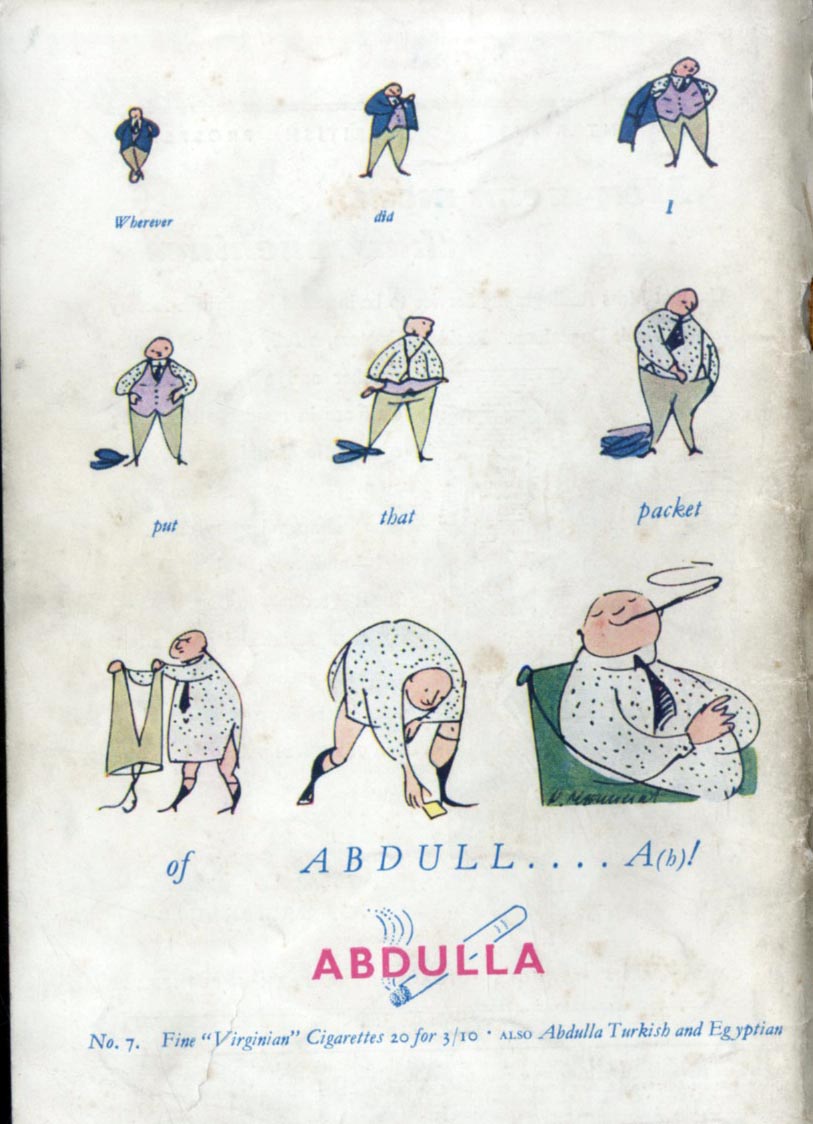 Wherever did I
put that packet
of ABDULL....A(h)!
ABDULLA
No. 7. Fine "Virginian" Cigarettes 20 for 3/10 · ALSO Abdulla Turkish and Egyptian